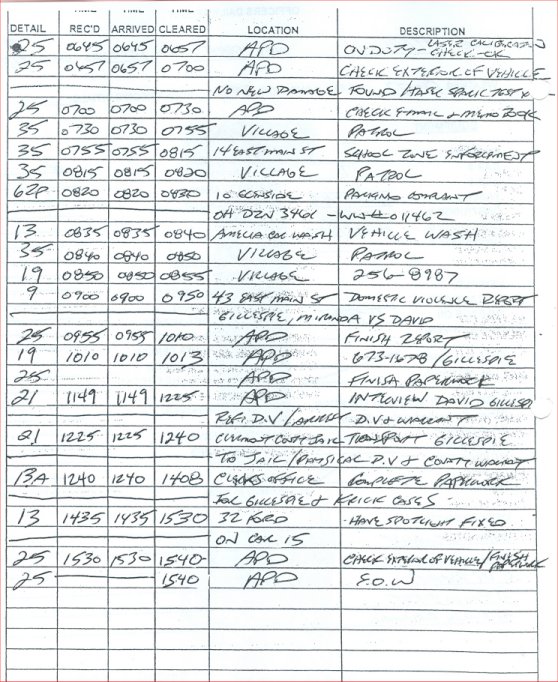 TIME TIME TIME
DETAIL REC'D ARRIVED CLEARED LOCATION DESCRIPTION
25 0645 0645 0657 APD ON DUTY - LASER CALIBRATION CHECK - OK
25 0657 0657 0700 APD CHECK EXTERIOR OF VEHICLE
NO NEW DAMAGE FOUND/
25 0700 0700 0730 APD CHECK EMAIL & MEMO BOOK
35 0730 0730 0755 VILLAGE PATROL
35 0755 0755 0815 14 EAST MAIN ST SCHOOL ZONE ENFORCEMENT
35 0815 0815 0820 VILLAGE PATROL
62P 0820 0820 0830 10 PARKING COMPLAINT
OH DZN 3461 - 011462
13 0835 0835 0840 AMELIA CAR WASH VEHICLE WASH
35 0840 0840 0850 VILLAGE PATROL
19 0850 0850 0855 VILLAGE 256-8987
9 0900 0900 0950 43 EAST MAIN ST DOMESTIC VIOLENCE REPORT
GILLESPIE, MIRANDA VS DAVID
25 0955 0955 1010 APD FINISH REPORT
19 1010 1010 1013 APD 673-1678/GILLESPIE
25 APD FINISH PAPERWORK
21 1149 1149 1225 APD INTERVIEW DAVID GILLESPI
REF: D.V/ARREST D.V & WARRANT
21 1225 1225 1240 CLERMONT COUNTY JAIL TRANSPORT GILLESPIE
TO JAIL/PHYSICAL D.V & COUNTY WARRANT
13A 1240 1240 1408 CLERKS OFFICE COMPLETE PAPERWORK
FOR GILLESPIE & KRICK CASES
13 1435 1435 1530 32 FORD HAVE SPOTLIGHT FIXED
ON CAR 15
25 1530 1530 1540 APD CHECK EXTERIOR OF VEHICLE/FINISH PAPERWORK
25 1540 APD E.O.W